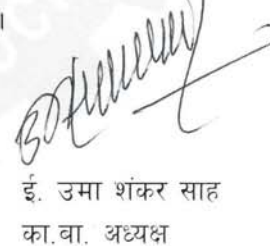 ।
ई. उमा शंकर साह
का.वा. अध्यक्ष